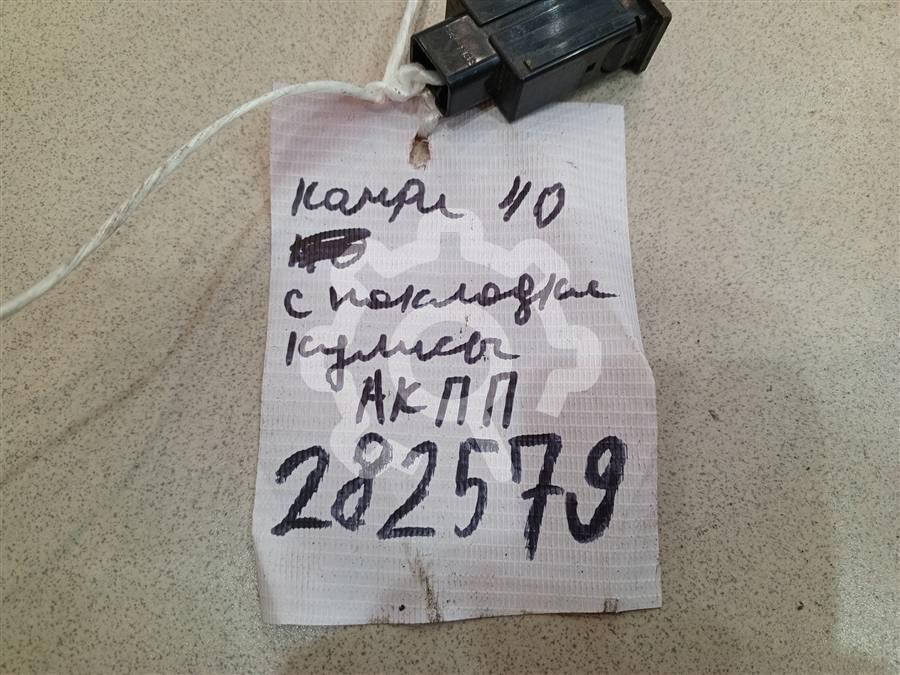 Камри 40
с покладки
кулисы
АКПП
282579